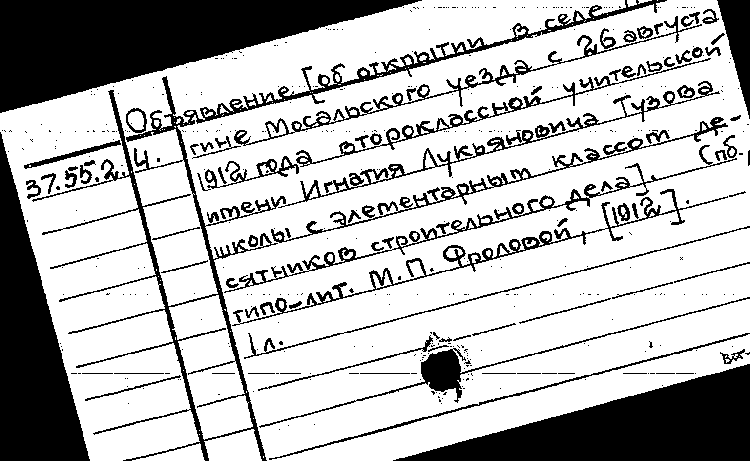 Объявление [об открытии в селе
гине Мосальского уезда с 26 августа
37.55.2. 1912 года второклассной учительской
4.
имени Игнатия Лукьяновича Тузова
школы с элементарным классом де-
сятников строительного дела]. (пб.,
типо-лит. М.П. Фроловой, [1912].
1 л.